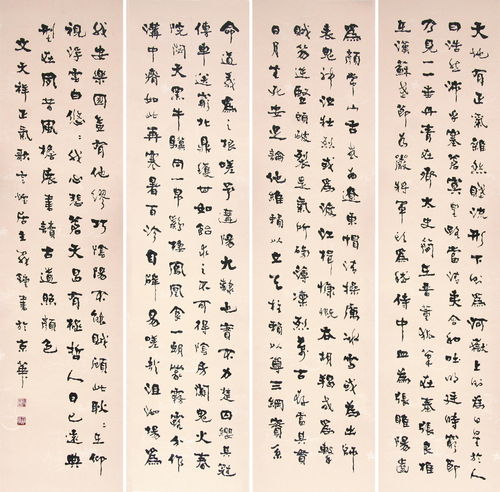 天地有正氣雜然賦流形下則為河嶽上則為日星於人
曰浩然沛乎塞蒼冥皇路當清夷含和吐明庭時窮節
乃見一一垂丹青在齊太史簡在晉董狐筆在秦張良椎
在漢蘇武節為嚴將軍頭為嵇侍中血為張睢陽齒
為顏常山舌或為遼東帽清操厲冰雪或為出師
表鬼神泣壯烈或為渡江楫慷慨吞胡羯或為擊
賊笏逆豎頭破裂是氣所磅礴凜烈萬古存當其貫
日月生死安足論地維賴以立天柱賴以尊三綱實係
命道義為之根嗟予遘陽九隸也實不力楚囚纓其冠
傳車送窮北鼎鑊甘如飴求之不可得陰房闃鬼火春
院閟天黑牛驥同一皁雞棲鳳凰食一朝蒙霧露分作
溝中瘠如此再寒暑百沴自辟易嗟哉沮洳場為
我安樂國豈有他繆巧陰陽不能賊顧此耿〻在仰
視浮雲白悠〻我心悲蒼天曷有極哲人日已遠典
型在夙昔風檐展書讀古道照顏色
文天祥正氣歌 書於京華